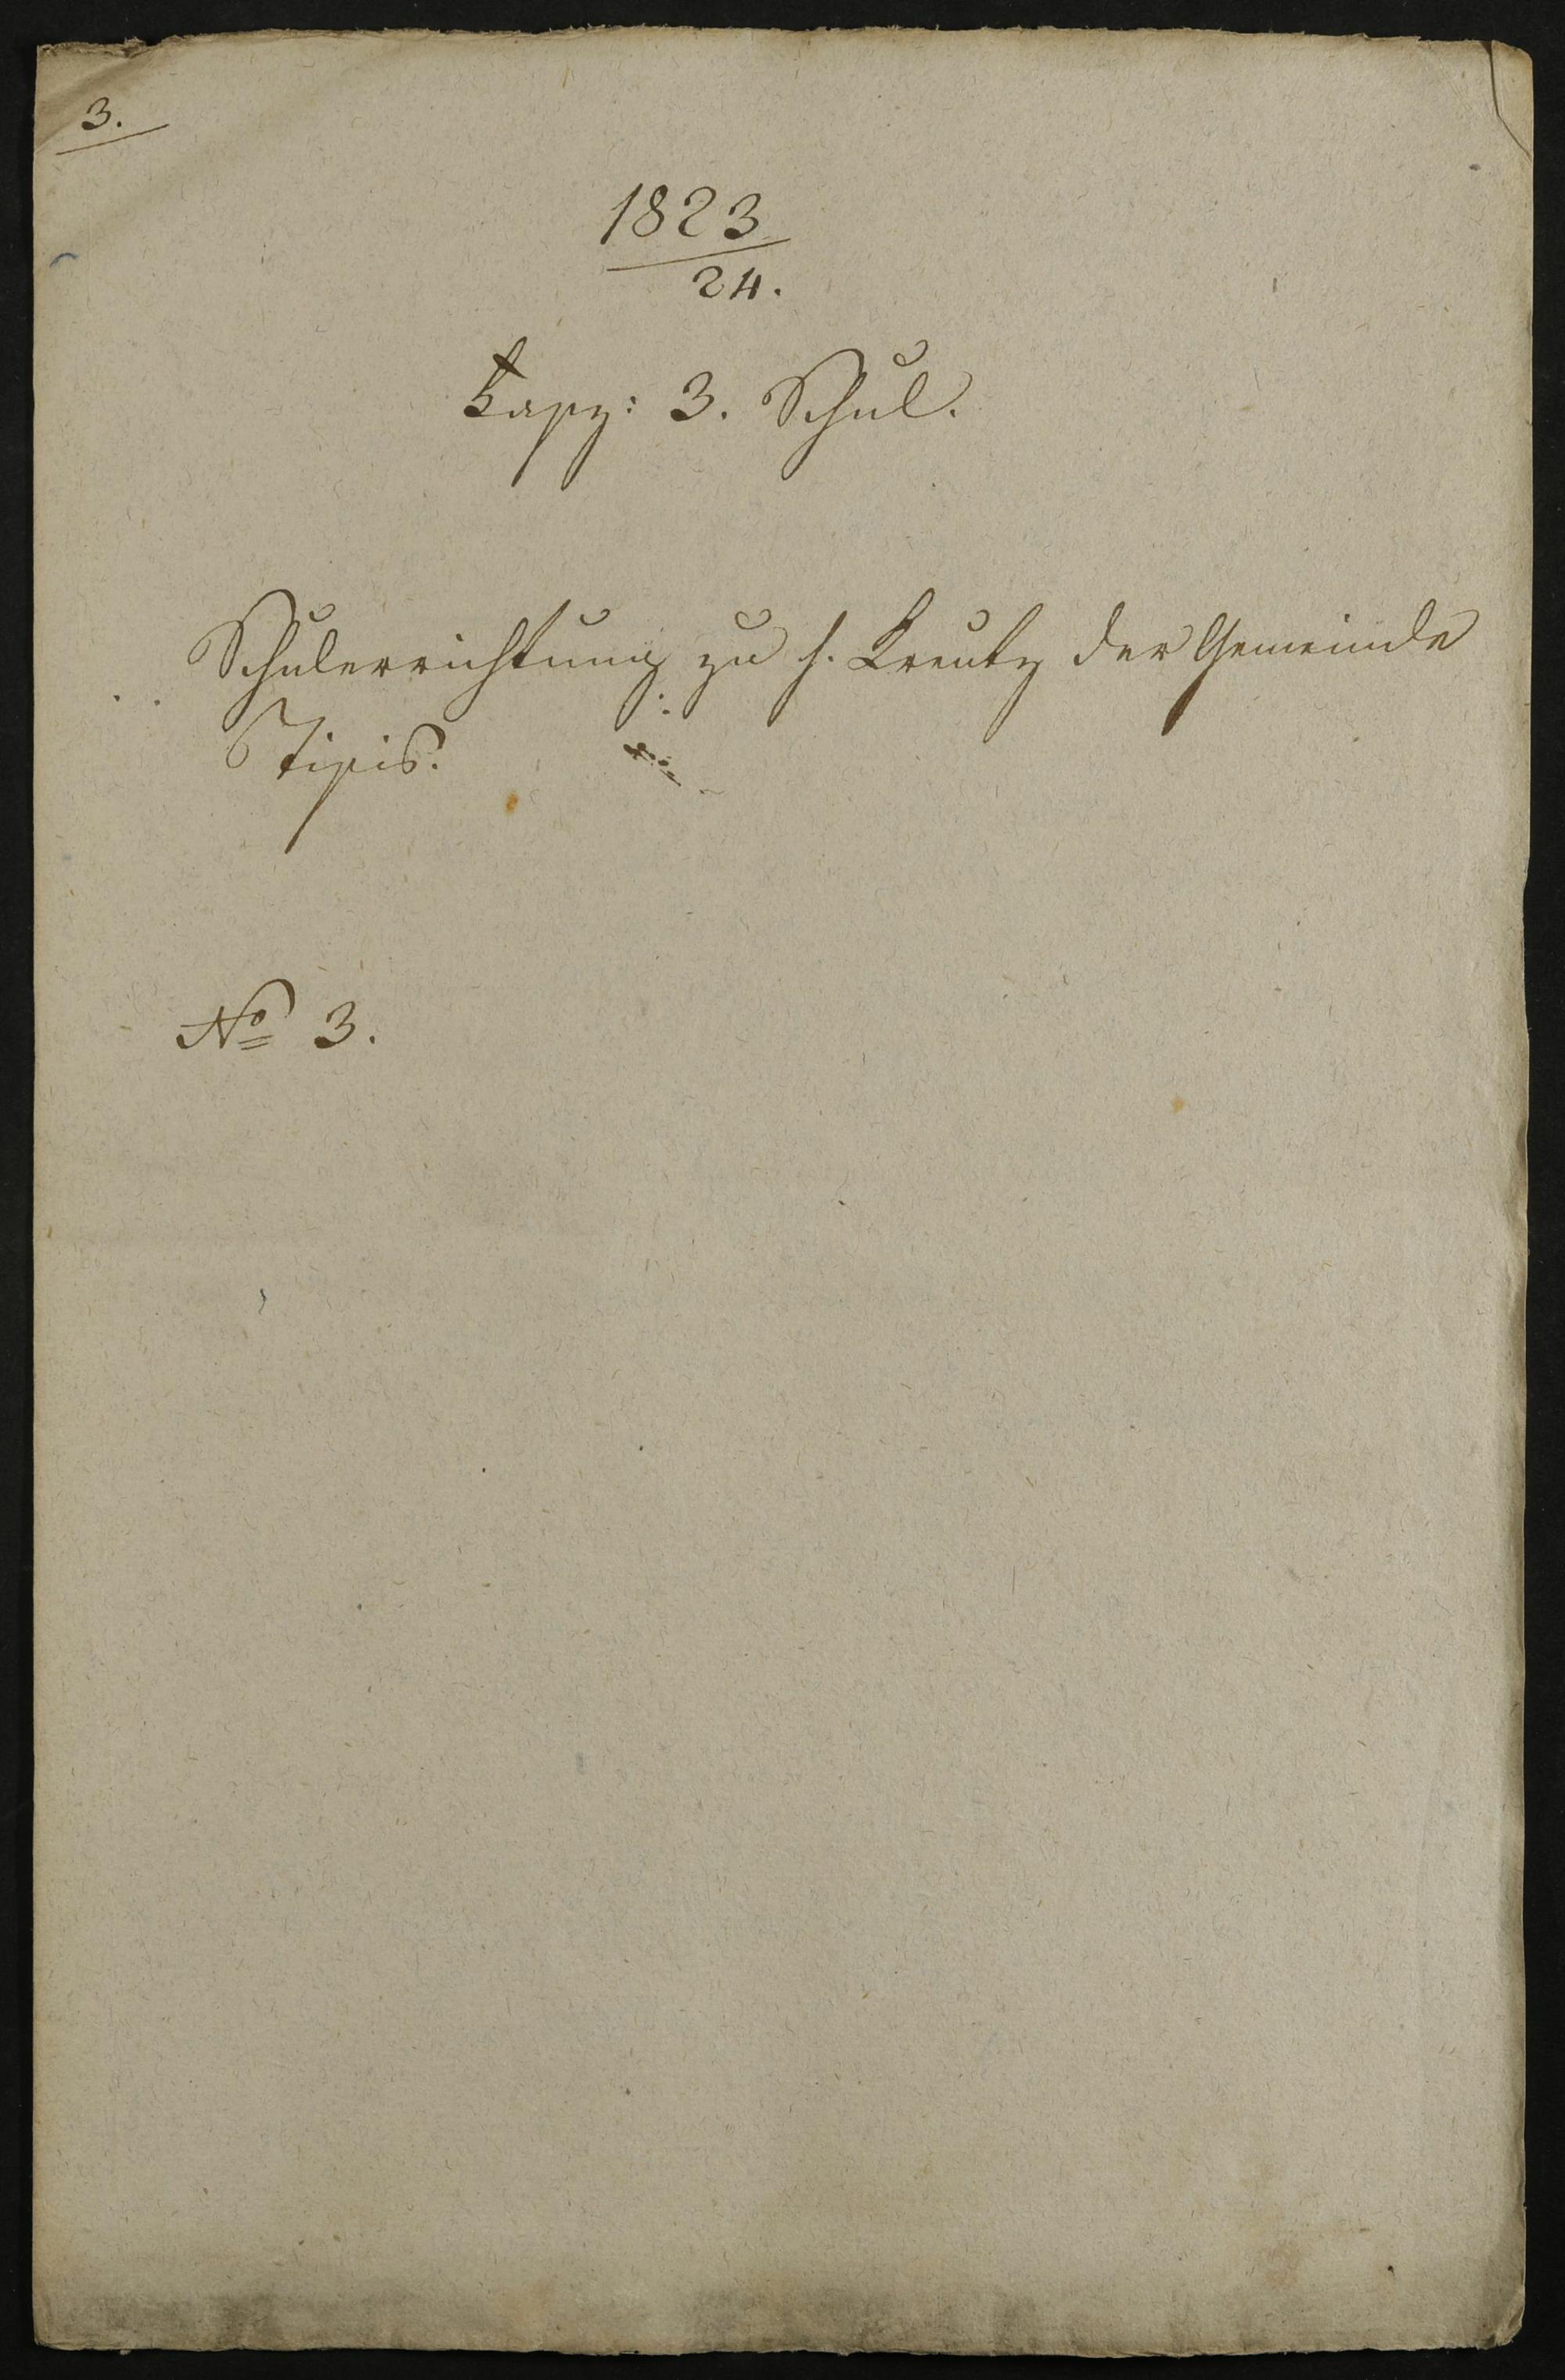 3.
1823
24.
Fasz: 3. Schul.
Schulerrichtung zu h. Kreutz der Gemeinde
No 3.